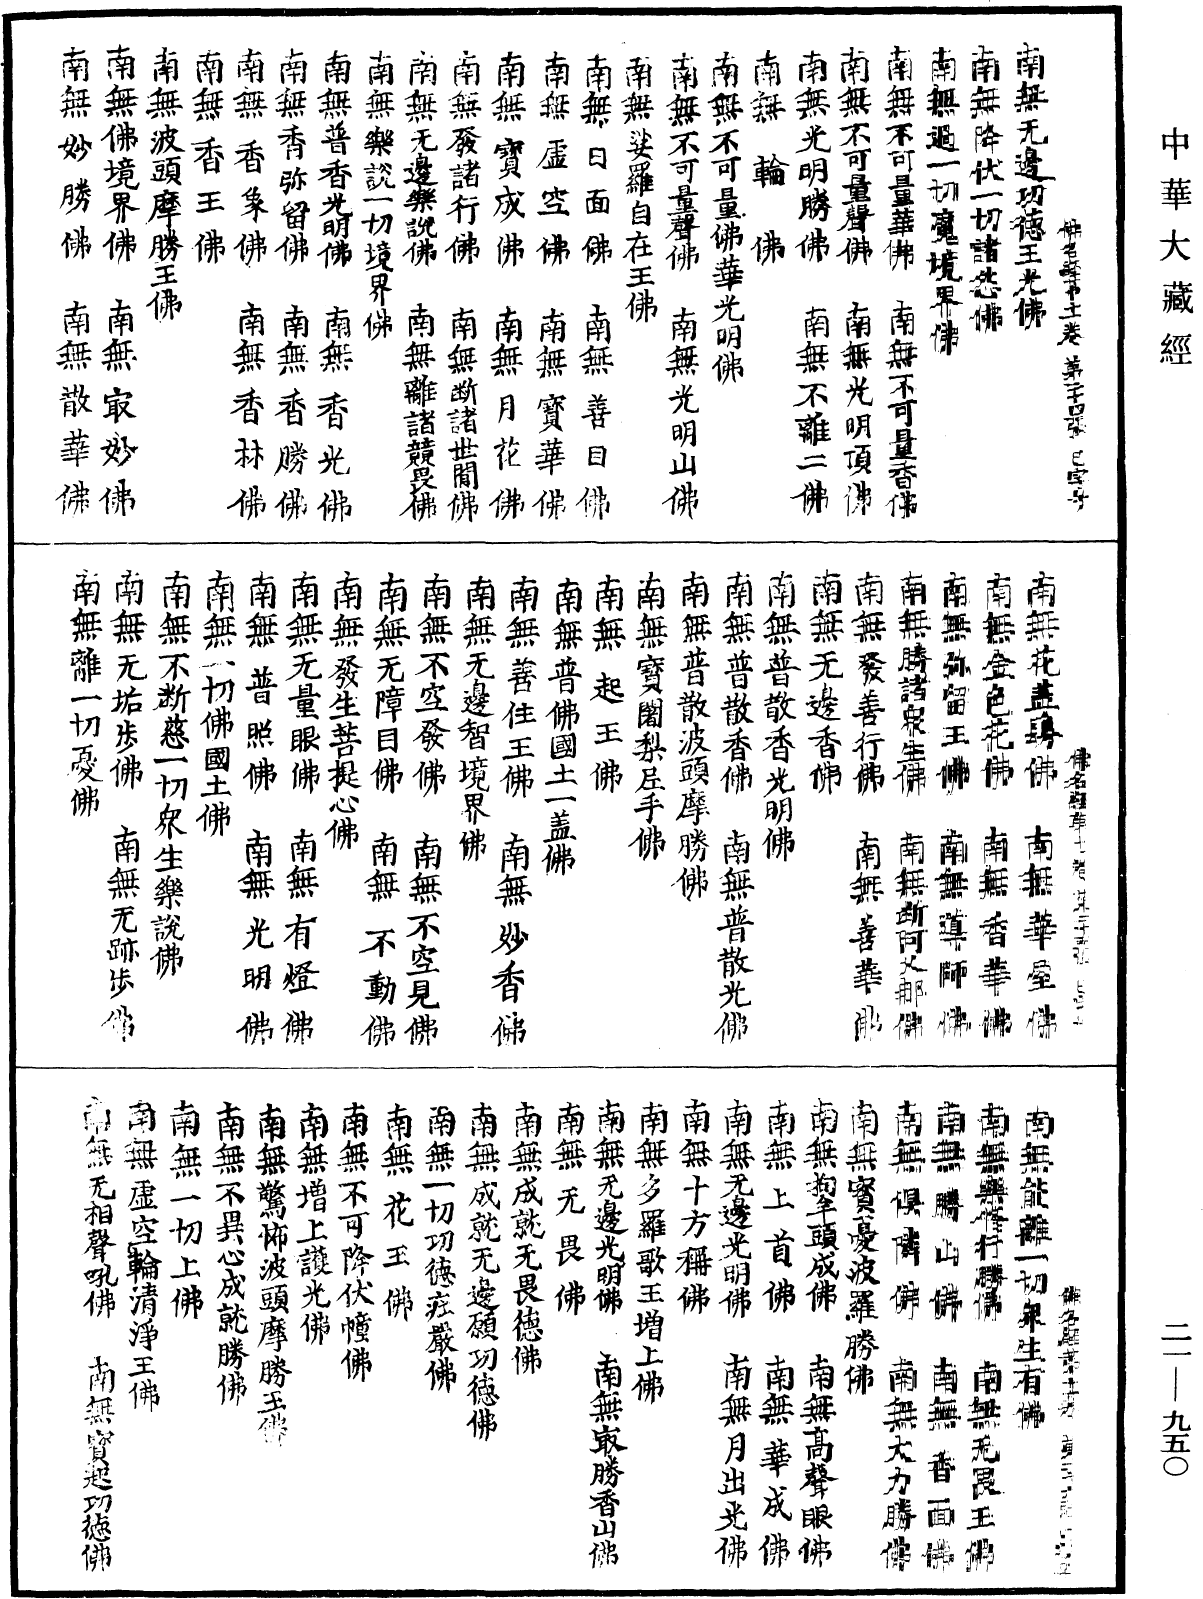 中華大藏經
南無无邊功德王光佛
南無降伏一切諸怨佛
南無過一切魔境界佛
南無不可量華佛 南無不可量香佛
南無不可量聲佛 南無光明頂佛
南無光明勝佛 南無不離二佛
南無輪佛
南無不可量佛華光明佛
南無不可量聲佛 南無光明山佛
南無娑羅自在王佛
南無日面佛 南無善目佛
南無虛空佛 南無寶華佛
南無寶成佛 南無月花佛
南無發諸行佛 南無断諸世間佛
南無无邊樂說佛 南無離諸競畏佛
南無樂說一切境界佛
南無普香光明佛 南無香光佛
南無香弥留佛 南無香勝佛
南無香象佛 南無香林佛
南無香王佛
南無波頭摩勝王佛
南無佛境界佛 南無冣妙佛
南無妙勝佛 南無散華佛
南無花盖鬘佛 南無華屋佛
南無金色花佛 南無香華佛
南無弥留王佛 南無導師佛
南無勝諸衆生佛 南無断阿叉那佛
南無發善行佛 南無善華佛
南無无邊香佛
南無普散香光明佛
南無普散香佛 南無普散光佛
南無普散波頭摩勝佛
南無寶闍梨尼手佛
南無起王佛
南無普佛國土一盖佛
南無善住王佛 南無妙香佛
南無无邊智境界佛
南無不空發佛 南無不空見佛
南無无障目佛 南無不動佛
南無發生菩提心佛
南無无量眼佛 南無有燈佛
南無普照佛 南無光明佛
南無一切佛國土佛
南無不断慈一切衆生樂說佛
南無无垢步佛 南無无跡步佛
南無離一切憂佛
南無能離一切衆生有佛
南無樂修行勝佛 南無无畏王佛
南無勝山佛 南無香面佛
南無俱隣佛 南無大力勝佛
南無寶憂波羅勝佛
南無拘牟頭成佛 南無高聲眼佛
南無上首佛 南無華成佛
南無无邊光明佛 南無月出光佛
南無十方稱佛
南無多羅歌王增上佛
南無无邊光明佛 南無冣勝香山佛
南無无畏佛
南無成就无畏德佛
南無成就无邊願功德佛
南無一切功德庄嚴佛
南無花王佛
南無不可降伏幢佛
南無增上護光佛
南無驚怖波頭摩勝王佛
南無不異心成就勝佛
南無一切上佛
南無虛空輪清淨王佛
南無无相聲吼佛 南無寶起功德佛
二一—九五〇